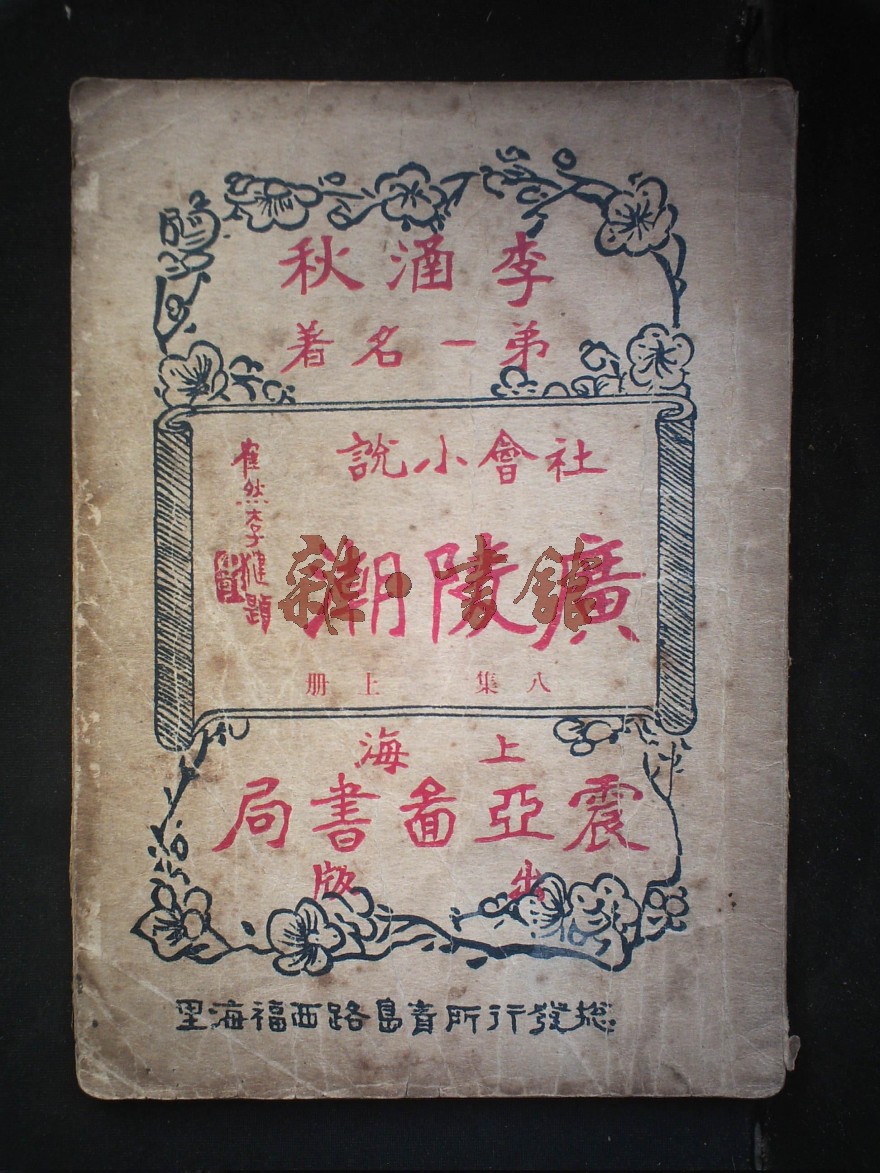 李涵秋
弟一名著
社會小說
廣陵潮
八集 上册
然李健題
雜·書館
上海
震亞啚書局
出版
總發行所青島路西福海里